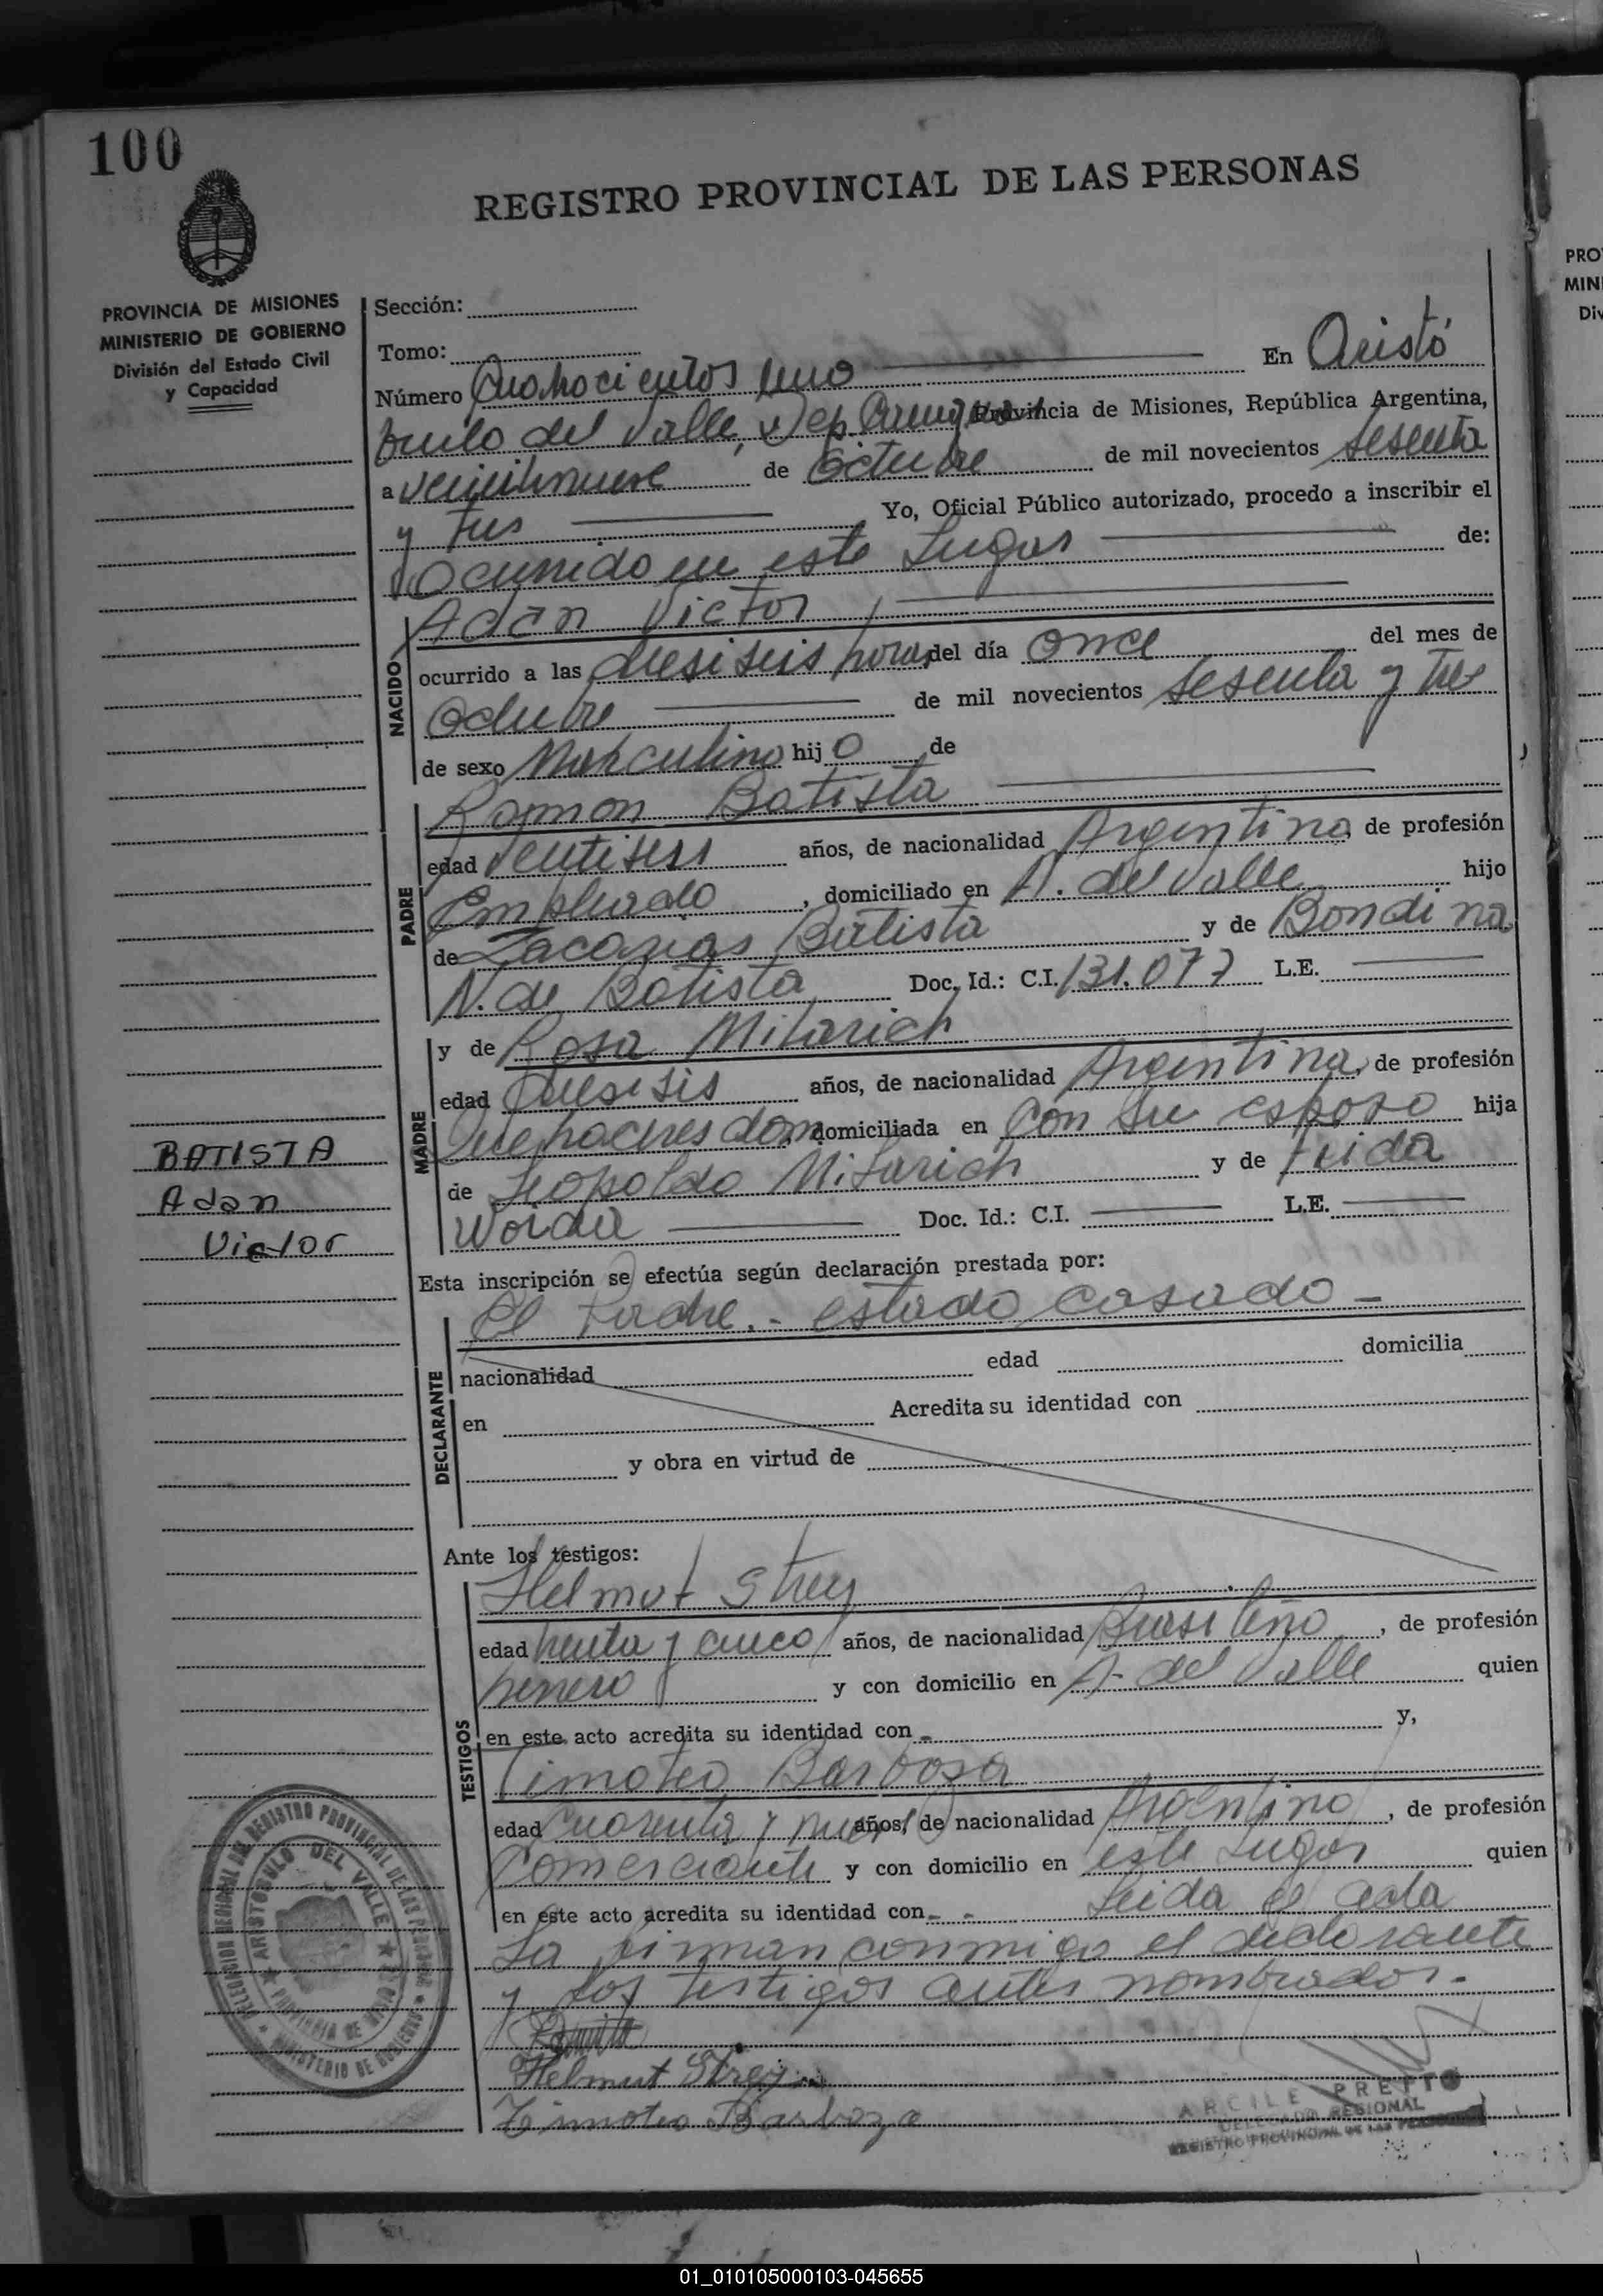 100
REGISTRO PROVINCIAL DE LAS PERSONAS
PROVINCIA DE MISIONES
MINISTERIO DE GOBIERNO
División del Estado Civil
y Capacidad
Sección:
Tomo:
Número Cuatrocientos Uno En Aristó
bulo del Valle, Dep. Provincia de Misiones, República Argentina,
a veintinueve de Octubre de mil novecientos sesenta
y tres Yo, Oficial Público autorizado, procedo a inscribir el
ocurrido en este Lugar de:
NACIDO
Adan Victor
ocurrido a las diesiseis horas del día once del mes de
Octubre de mil novecientos sesenta y tres
de sexo Masculino hijo de
PADRE
Ramon Batista
edad ventiseis años, de nacionalidad Argentina, de profesión
Empleado, domiciliado en A. del Valle hijo
de Zacarias Batista y de Bondina
N. de Batista Doc. Id.: C.I. 131.077 L.E.
MADRE
y de Rosa Mitarich
edad diesisis años, de nacionalidad Argentina, de profesión
Quehaceres dom, domiciliada en Con su esposo hija
de Leopoldo Mitarich y de Frida
Woidu Doc. Id.: C.I. L.E.
BATISTA
Adan
Victor
Esta inscripción se efectúa según declaración prestada por:
DECLARANTE
El Padre.- estado casado -
nacionalidad edad domicilia
en Acredita su identidad con
y obra en virtud de
Ante los testigos:
TESTIGOS
Helmut Strey
edad treinta y cinco años, de nacionalidad Brasileño, de profesión
herrero y con domicilio en A- del Valle quien
en este acto acredita su identidad con - y,
Timoteo Barboza
edad Cuarenta y nueve años, de nacionalidad Argentino, de profesión
Comerciante y con domicilio en este Lugar quien
en este acto acredita su identidad con - - Leida el acta
La firman conmigo el declarante
y los testigos antes nombrados.-
Helmut Strey
Timoteo Barboza
DELEGACION REGIONAL DEL REGISTRO PROVINCIAL DE LAS PERSONAS
ARISTOBULO DEL VALLE
PROVINCIA DE MISIONES
MINISTERIO DE GOBIERNO
ARCILE PRETTO
DELEGADO REGIONAL
REGISTRO PROVINCIAL DE LAS PERSONAS
PRO
MIN
Div
01_010105000103-045655